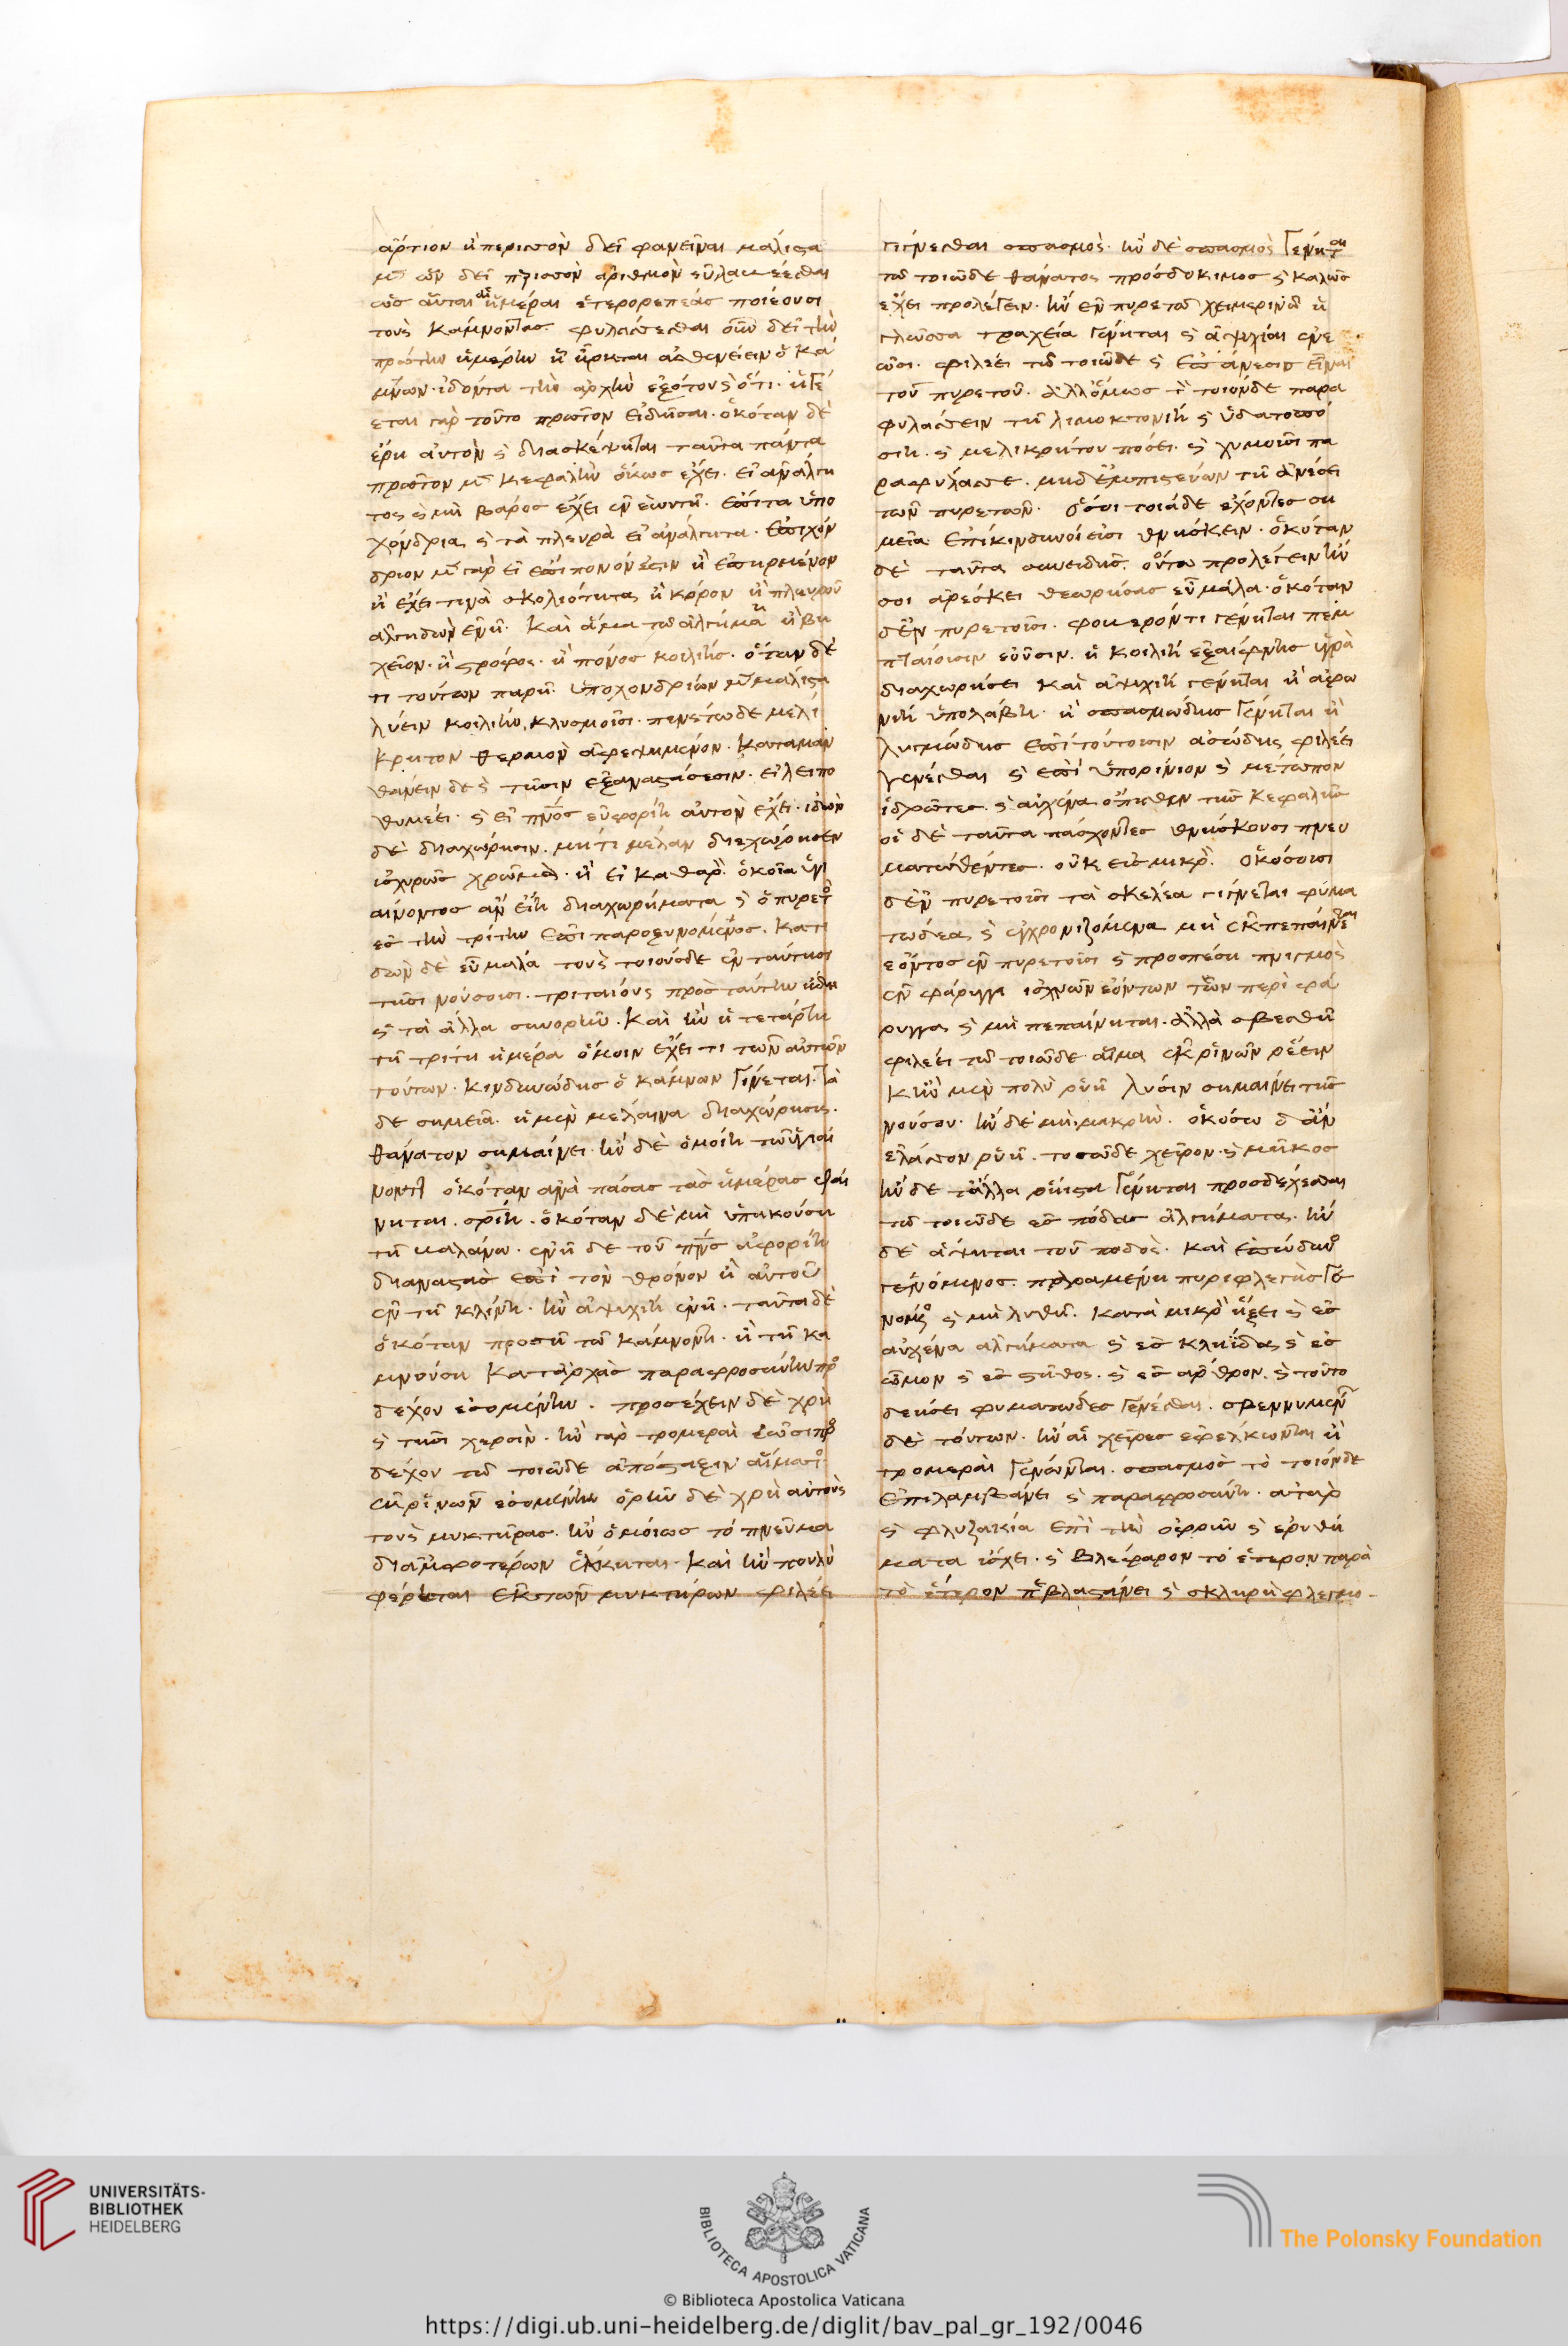 ἄρτιον ἢ περισσὸν δεῖ φανεῖναι μάλιστα
τοὺς κάμνοντας. φυλάσσεσθαι οὖν δεῖ τὴν
πρώτην ἡμέρην ἢ ἦρκται ἀσθενέειν ὁ κά
μνων. ἰδόντα τὴν ἀρχὴν
εται γὰρ τοῦτο πρῶτον εἰδῆσαι. ὁκόταν δὲ
ἔρη αὐτὸν ϛ διασκέψηται ταῦτα πάντα
πρῶτον μὲν κεφαλὴν ὅκως ἔχει. εἰ ἀνάλγη
τος ϛ μὴ βάρος ἔχει ἐν ἑωυτῇ. ἔπειτα ὑπο
χόνδρια ϛ τὰ πλευρὰ εἰ ἀνάλγητα.
ἢ ἔχει τινὰ σκολιότητα ἢ κόρον ἢ πλευροῦ
ἀλγηδὼν ἐνῇ. καὶ ἅμα τῷ ἀλγήματι ἢ βη
χεῖον. ἢ στρόφος. ἢ πόνος κοιλίης. ὅταν δέ
τι τούτων παρῇ. ὑποχονδρίων μὲν μάλιστα
λύειν κοιλίην κλυσμοῖσι. πινέτω δὲ μελί
κρητον θερμὸν ἀφεψημένον. καταμαν
θάνειν δὲ ϛ τῇσιν ἐξαναστάσεσιν. εἰ λειπο
θυμέει. ϛ εἰ πνς εὐφορίη αὐτὸν ἔχει. ἰδεῖν
δὲ διαχώρησιν. μή τι μέλαν διεχώρησεν
ἰσχυρῶς χρῶμα. ἢ εἰ καθαρὸν ὁκοῖα ὑγι
αίνοντος ἂν εἴη διαχωρήματα ϛ ὁ πυρετὸς
ἐς τὴν τρίτην ἐπιπαροξυνόμενος. κατι
δὼν δὲ εὖ μάλα τοὺς τοιούσδε ἐν ταύτῃσι
τῇσι νούσοισι. τριταίους πρὸς ταύτην ἤδη
ϛ τὰ ἄλλα συνορῆν. καὶ ἢν ἡ τετάρτη
τῇ τρίτῃ ἡμέρα ὅμοιν ἔχει τι τῶν αὐτῶν
τούτων. κινδυνώδης ὁ κάμνων γίνεται. τὰ
δὲ σημεῖα. ἡ μὲν μέλαινα διαχώρησις.
θάνατον σημαίνει. ἢν δὲ ὁμοίη τῷ ὑγιαί
νοντι ὁκόταν ἀνὰ πάσας τὰς ἡμέρας φαί
νηται. σρίη. ὁκόταν δὲ μὴ ὑπακούσῃ
τῇ βαλάνῳ. ἐνῇ δὲ τοῦ πνς εὐφορίη
διαναστὰς ἐπὶ τὸν θρόνον ἢ αὐτοῦ
ἐν τῇ κλίνῃ. ἢν ἀψυχίη ἐνῇ. ταῦτα δὲ
ὁκόταν προσῇ τῷ κάμνοντι. ἢ τῇ κα
μνούσῃ κατ' ἀρχὰς παραφροσύνην προς
δέχου ἐσομένην. προσέχειν δὲ χρὴ
ϛ τῇσι χερσίν. ἢν γὰρ τρομεραὶ ἔωσι προς
δέχου τῷ τοιῷδε ἀπόσταξιν αἵματος
ἐκ ῥινῶν ἐσομένην ὁρῆν δὲ χρὴ αὐτοὺς
τοὺς μυκτῆρας. ἢν ὁμοίως τὸ πνεῦμα
δι' ἀμφοτέρων ἕλκηται. καὶ ἢν πουλὺ
φέρηται ἐκ τῶν μυκτήρων φιλέει
γίγνεσθαι σπασμός. ἢν δὲ σπασμὸς γένηται
τῷ τοιῷδε θάνατος προσδόκιμος ϛ καλῶς
ἔχει προλέγειν. ἢν ἐν πυρετῷ χειμερινῷ ἡ
γλῶσσα τραχεῖα γένηται ϛ ἀψυχίαι ἐνέ
ωσι. φιλέει τῷ τοιῷδε ϛ ἐπάνεσις εἶναι
τοῦ πυρετοῦ. ἀλλ' ὅμως τὸν τοιόνδε παρα
φυλάσσειν τῇ λιμοκτονίῃ ϛ ὑδατοποσ
ίῃ. ϛ μελικρήτου πόσει. ϛ χυμοῖσι πα
ραφυλάσσε. μηδ' ἐμπιστεύων τῇ ἀνέσει
τῶν πυρετῶν. ὅσοι τοιάδε ἔχοντες ση
μεῖα ἐπίκινδυνοί εἰσι θνήσκειν. ὁκόταν
δὲ ταῦτα συνειδῇς. οὕτω προλέγειν ἤν
σοι ἀρέσκει θεωρήσας εὖ μάλα. ὁκόταν
δ' ἐν πυρετοῖσι. φοβερόν τι γένηται πεμ
πταίοισιν ἐοῦσιν. ἡ κοιλίη ἐξαίφνης ὑγρὰ
διαχωρήσει καὶ ἀψυχίη γένηται ἢ ἀφω
νίη ὑπολάβῃ. ἢ σπασμώδης γένηται ἢ
λυγμώδης ἐπὶ τούτοισιν ἀσώδης φιλέει
γενέσθαι ϛ ἐπὶ ὑπορίνιον ϛ μέτωπον
ἱδρῶτες. ϛ αὐχένα ὄπισθεν τῆς κεφαλῆς
οἱ δὲ ταῦτα πάσχοντες θνήσκουσι πνευ
ματωθέντες. οὐκ ἐς μικρόν. ὁκόσοισι
δ' ἐν πυρετοῖσι τὰ σκέλεα γίγνεται φύμα
τώδεα ϛ ἐγχρονιζόμενα μὴ ἐκπεπαίνηται
ἐόντος ἐν πυρετοῖσι ϛ προσπέσῃ πνιγμὸς
ἐν φάρυγγι ἰσχνῶν ἐόντων τῶν περὶ φά
ρυγγα ϛ μὴ πεπαίνηται. ἀλλὰ σβεσθῇ
φιλέει τῷ τοιῷδε αἷμα ἐκ ῥινῶν ῥέειν
κἢν μὲν πολὺ ῥυῇ λύσιν σημαίνει τῆς
νούσου. ἢν δὲ μὴ μακρήν. ὁκόσῳ δ' ἂν
ἔλασσον ῥυῇ. τοσῷδε χεῖρον. ϛ μῆκος
ἢν δὲ τἄλλα ῥήιστα γένηται προσδέχεσθαι
τῷ τοιῷδε ἐς πόδας ἀλγήματα. ἢν
δὲ ἅψηται τοῦ ποδός. καὶ ἐπώδυνος
γενόμενος. παραμένῃ πυριφλεγὴς γε
νόμενος ϛ μὴ λυθῇ. κατὰ μικρὸν ἥξει ϛ ἐς
αὐχένα ἀλγήματα ϛ ἐς κληῖδα ϛ ἐς
ὦμον ϛ ἐς στῆθος. ϛ ἐς ἄρθρον. ϛ τοῦτο
δεήσει φυματῶδες γενέσθαι. σβεννυμένων
δὲ τούτων. ἢν αἱ χεῖρες ἐφέλκωνται ἢ
τρομεραὶ γένωνται. σπασμὸς τὸ τοιόνδε
ἐπιλαμβάνει ϛ παραφροσύνη. ἀτὰρ
ϛ φλυζάκια ἐπὶ τὴν ὀφρῦν ϛ ἐρυθή
ματα ἴσχει. ϛ βλέφαρον τὸ ἕτερον παρὰ
τὸ ἕτερον παραβλαστάνει ϛ σκληρὴ φλεγμο
UNIVERSITÄTS-
BIBLIOTHEK
HEIDELBERG
BIBLIOTECA APOSTOLICA VATICANA
The Polonsky Foundation
© Biblioteca Apostolica Vaticana
https://digi.ub.uni-heidelberg.de/diglit/bav_pal_gr_192/0046